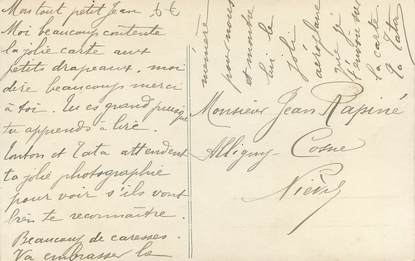 Mon tout petit Jean 6 €
Moi beaucoup contente
la jolie carte aux
petits drapeaux, moi
dire beaucoup merci
à toi. Tu es grand puisque
tu apprends à lire.
Tonton et Tata attendent
ta jolie photographie
pour voir s'ils vont
bien te reconnaître.
Beaucoup de caresses.
Va embrasser la
mémère
pour nous
et montre
lui le
joli
aéroplane
sur
la carte
ta Tata
Monsieur Jean Rapiné
Alligny-Cosne
Nièvre